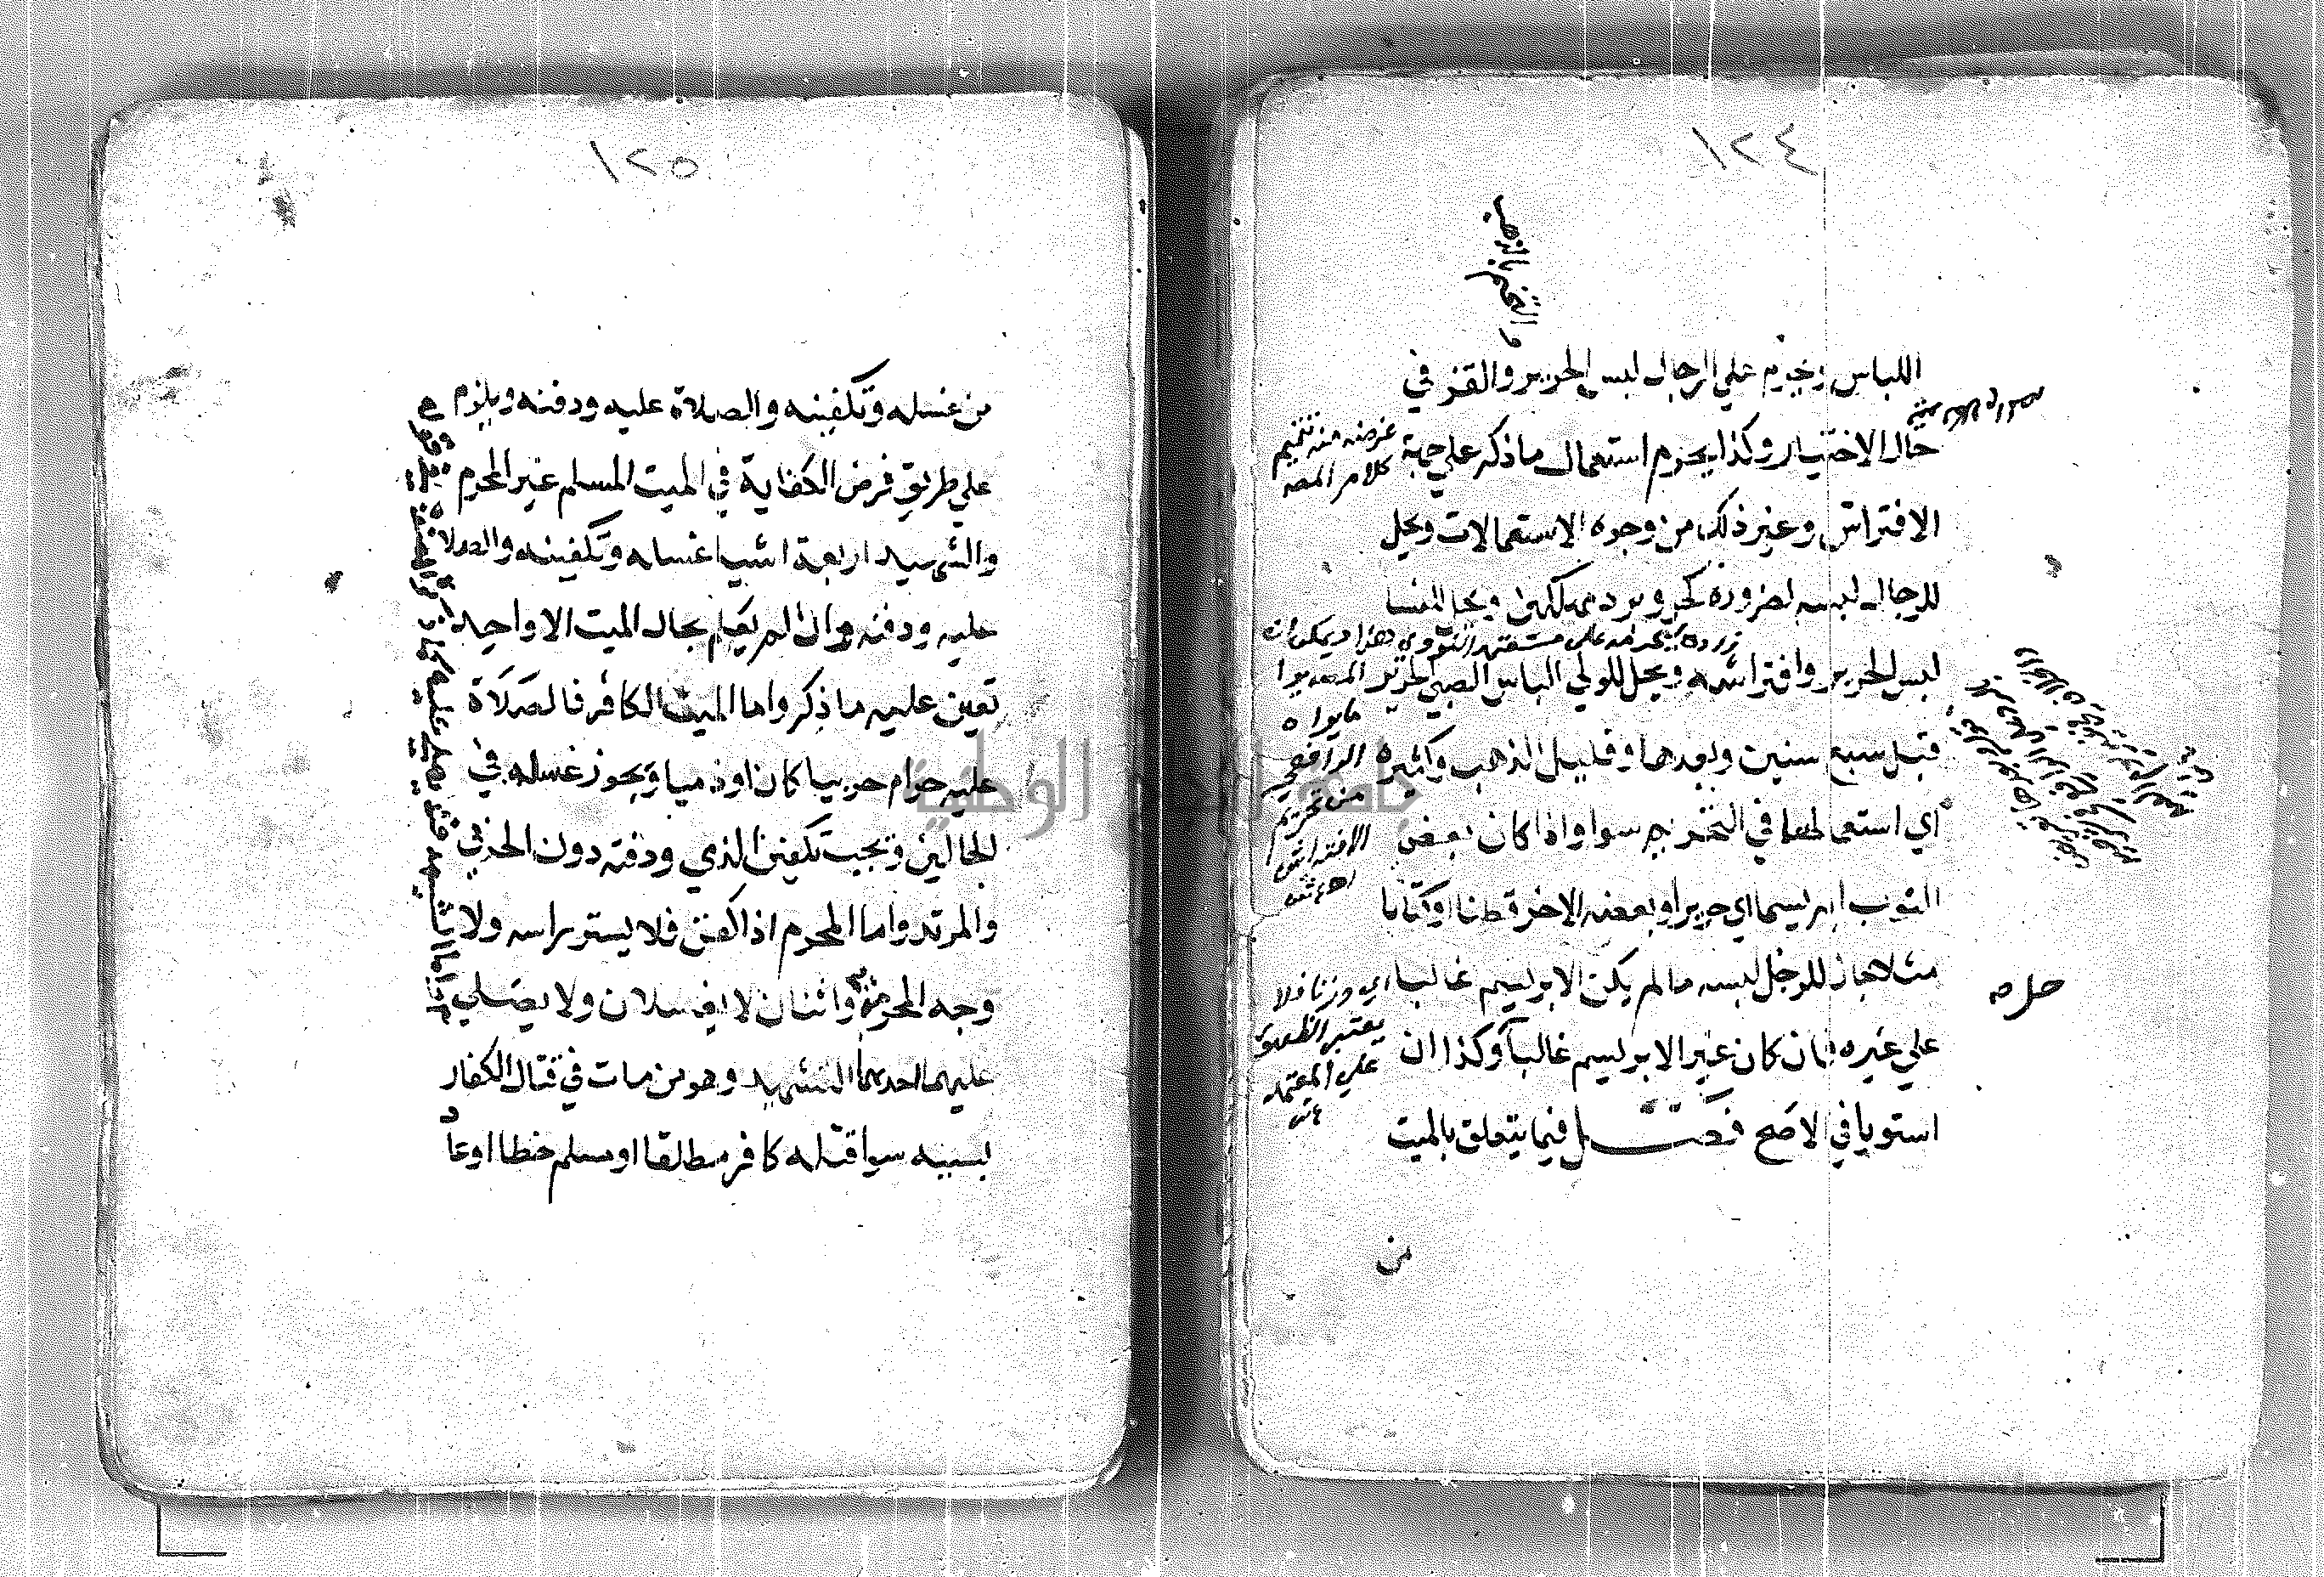 ١٢٤
والتختم بالذهب
اللباس ويحرم علي الرجال لبس الحرير والقز في
حال الاختيار وكذا يحرم استعمال ما ذكر علي جهة
غرضه منه تتميم
كلام المصـ
الافتراش وغير ذلك من وجوه الاستعمالات ويحل
للرجال لبسه لضرورة كحر وبرد مهلكين ويحل للنسا
لبس الحرير وافتراشه ويحل للولي الباس الصبي الحرير
قبل سبع سنين وبعدها وقليل الذهب وكثيره
الرافعي
من تحريم
الافتراش
اي استعمالهما في التحريم سوا واذا كان بعض
الثوب ابريسما اي حريرا وبعضه الاخر قطنا او كتانا
مثلا جاز للرجل لبسه ما لم يكن الابريسم غالبا اي وزنا فلا
يعتبر الظهور
علي المعتمد
علي غيره فان كان غير الابريسم غالبا وكذا ان
استويا في الاصح فصل فيما يتعلق بالميت
من
١٢٥
من غسله وتكفينه والصلاة عليه ودفنه ويلزم
علي طريق فرض الكفاية في الميت المسلم غير المحرم
والشهيد اربعة اشيا غسله وتكفينه والصلاة
عليه ودفنه وان لم يعلم بحال الميت الا واحد
تعين عليه ما ذكر واما الميت الكافر فالصلاة
عليه حرام حربيا كان او ذميا ويجوز غسله في
الحالين ويجب تكفين الذمي ودفنه دون الحربي
والمرتد واما المحرم اذا كفن فلا يستر راسه ولا
وجه المحرمة واثنان لا يغسلان ولا يصلي
عليهما احدهما الشهيد وهو من مات في قتال الكفار
بسببه سوا قتله كافر مطلقا او مسلم خطا او عاد
جامعة الوطنية